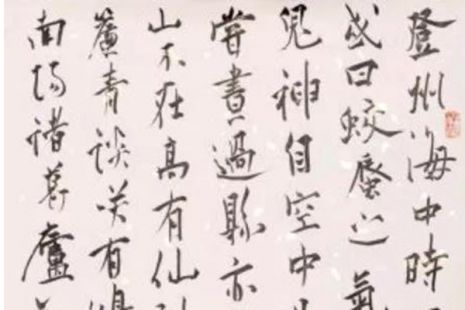 登州海中時
或曰蛟蜃之氣
鬼神自空中
嘗晝過縣亦
山不在高有仙
簾青談笑有
南陽諸葛廬